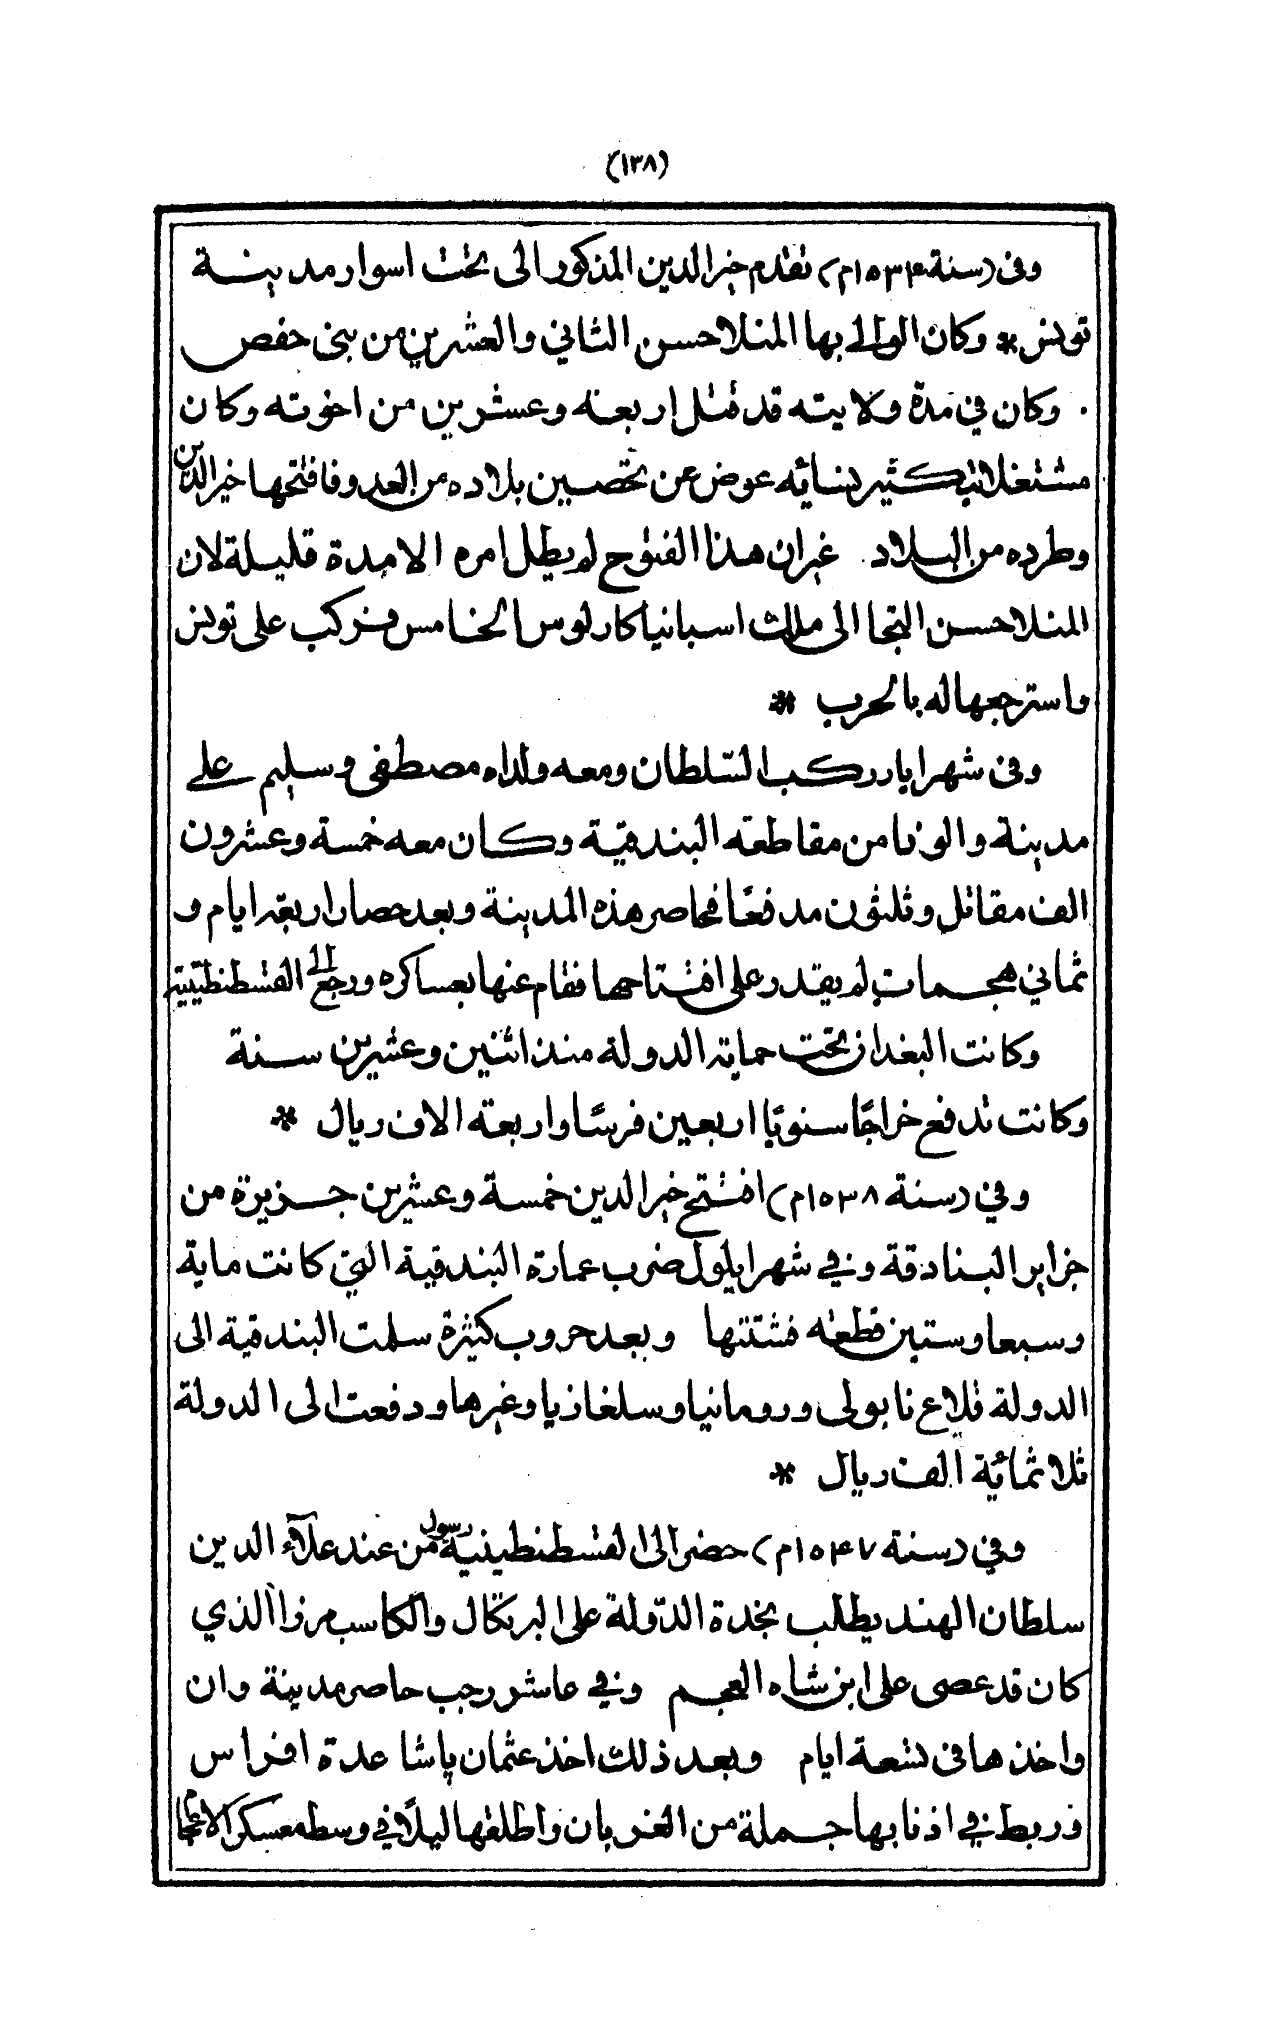 (١٣٨)
وفى (سنة ١٥٣٤م) تقدم خير الدين المذكور الى تحت اسوار مدينة
تونس * وكان الوالى بها المنلا حسن الثاني والعشرين من بنى حفص
. وكان في مدة ولايته قد قتل اربعة وعشرين من اخوته وكان
مشتغلا بتكثير نسائه عوض عن تحصين بلاده من العدو فافتتحها خير الدين
وطرده من البلاد غير ان هذا الفتوح لم يطل امره الا مدة قليلة لان
المنلا حسن التجا الى ملك اسبانيا كارلوس الخامس فركب على تونس
واسترجعها له بالحرب *
وفى شهر ايار ركب السلطان ومعه ولداه مصطفى وسليم على
مدينة والونا من مقاطعة البندقية وكان معه خمسة وعشرون
الف مقاتل وثلثون مدفعًا فحاصر هذه المدينة وبعد حصار اربعة ايام و
ثماني هجمات لم يقدر على افتتاحها فقام عنها بعساكره ورجع الى القسطنطينية
وكانت البغدان تحت حماية الدولة منذ اثنين وعشرين سنة
وكانت تدفع خراجًا سنويًا اربعين فرسًا واربعة الاف ريال *
وفي (سنة ١٥٣٨م) افتتح خير الدين خمسة وعشرين جزيرة من
جزاير البنادقة وفي شهر ايلول ضرب عمارة البندقية التي كانت ماية
وسبعا وستين قطعة فشتتها وبعد حروب كثيرة سلمت البندقية الى
الدولة قلاع نابولى ورومانيا وسلغازيا وغيرها ودفعت الى الدولة
ثلاثمائية الف ريال *
وفي (سنة ١٥٤٧م) حضر الى القسطنطينية رسول من عند علآء الدين
سلطان الهند يطلب نجدة الدّولة على البرتكال والكاسب مرزا الذي
كان قد عصى على ابن شاه العجم وفي عاشر رجب حاصر مدينة وان
واخذها فى تسعة ايام وبعد ذلك اخذ عثمان پاشا عدة افراس
وربط في اذنابها جملة من الغربان واطلقها ليلًا في وسط معسكر الاعجام